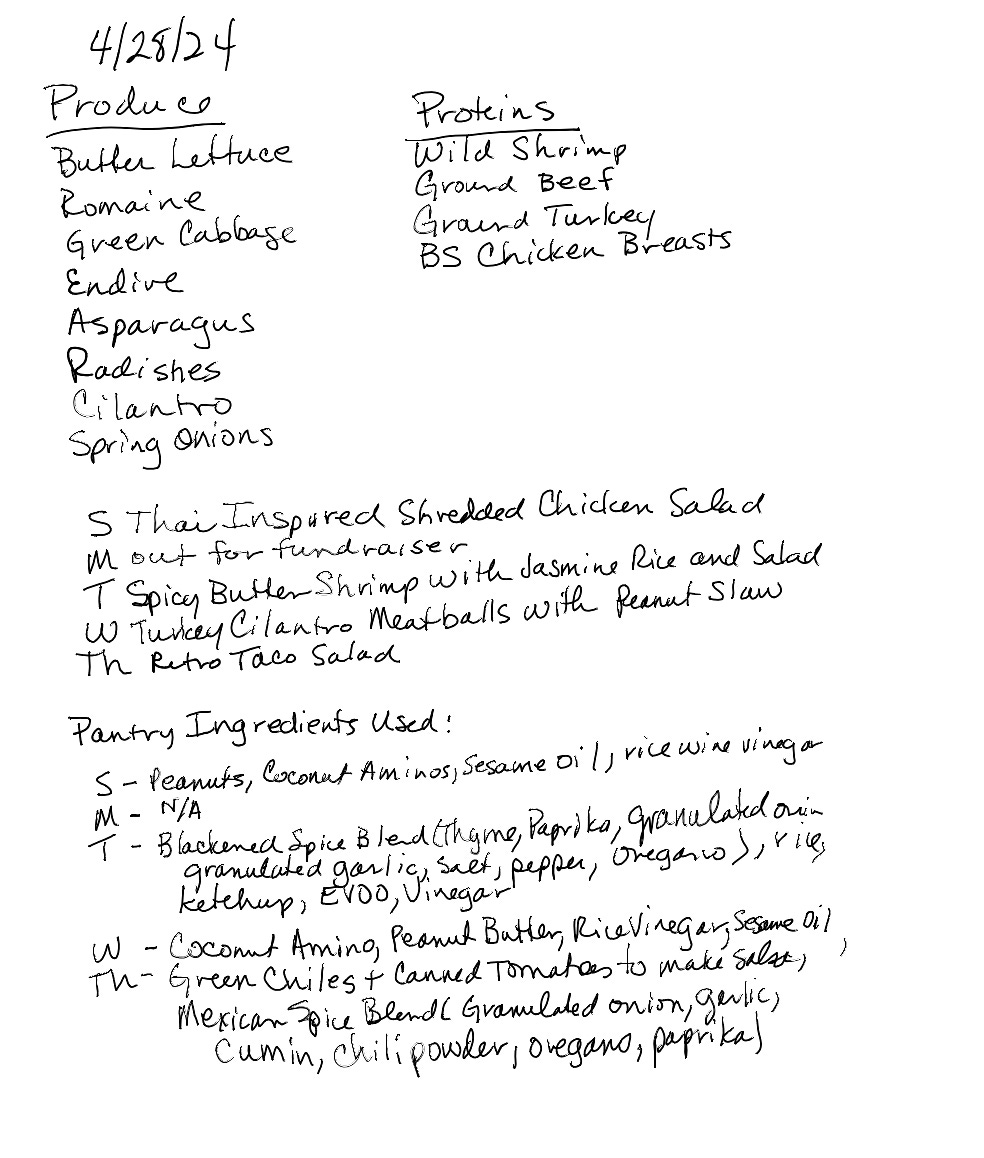 4/28/24
Produce
Butter Lettuce
Romaine
Green Cabbage
Endive
Asparagus
Radishes
Cilantro
Spring Onions
Proteins
Wild Shrimp
Ground Beef
Ground Turkey
BS Chicken Breasts
S Thai Inspired Shredded Chicken Salad
M out for fundraiser
T Spicy Butter Shrimp with Jasmine Rice and Salad
W Turkey Cilantro Meatballs with Peanut Slaw
Th Retro Taco Salad
Pantry Ingredients Used:
S - Peanuts, Coconut Aminos, Sesame Oil, rice wine vinegar
M - N/A
T - Blackened Spice Blend (Thyme, Paprika, granulated onion
granulated garlic, salt, pepper, oregano), rice,
ketchup, EVOO, Vinegar
W - Coconut Amino, Peanut Butter, Rice Vinegar, Sesame Oil,
Th - Green Chiles + Canned Tomatoes to make salsa,
Mexican Spice Blend (Granulated onion, garlic,
Cumin, chili powder, oregano, paprika)